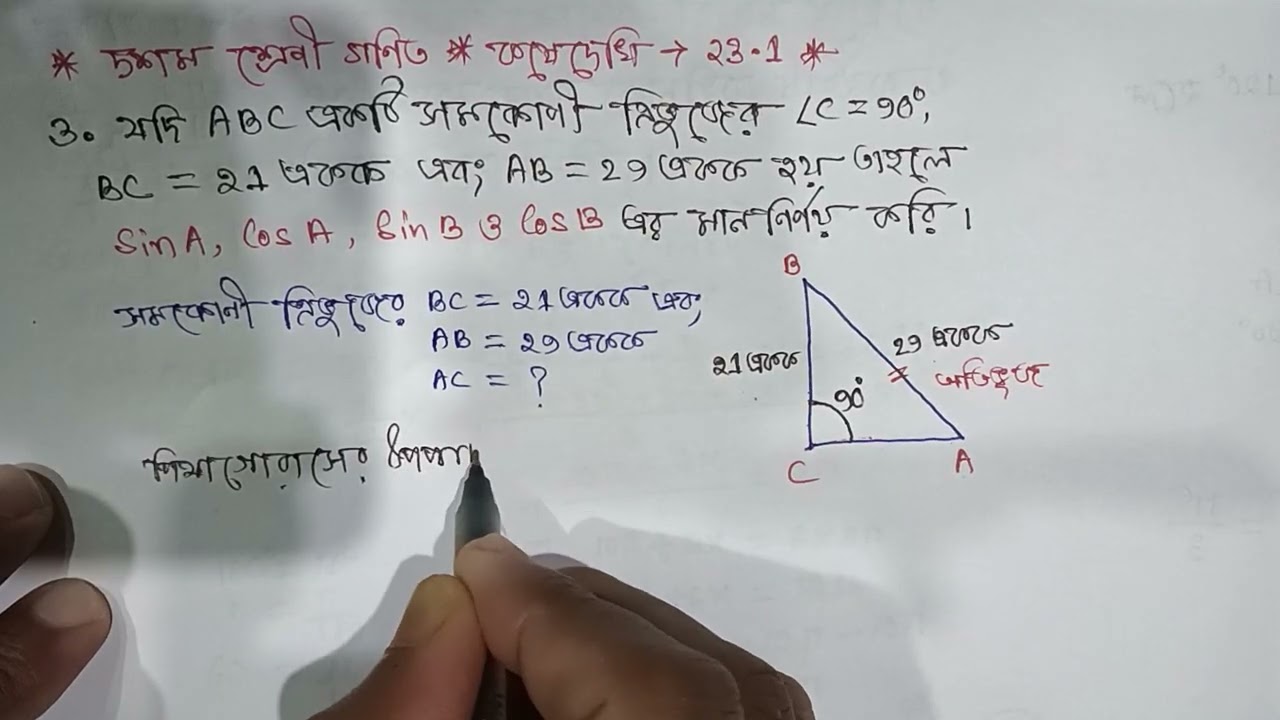 * দশম শ্রেণী গণিত * কষে দেখি → 23.1 *
3. যদি ABC একটি সমকোণী ত্রিভুজের ∠C = 90°,
BC = 21 একক এবং AB = 29 একক হয় তাহলে
SinA, CosA, SinB ও CosB এর মান নির্ণয় করি।
সমকোনী ত্রিভুজের BC = 21 একক এবং
AB = 29 একক
AC = ?
পিথাগোরাসের উপপা
B
21 একক
29 একক
অতিভুজ
90°
C
A